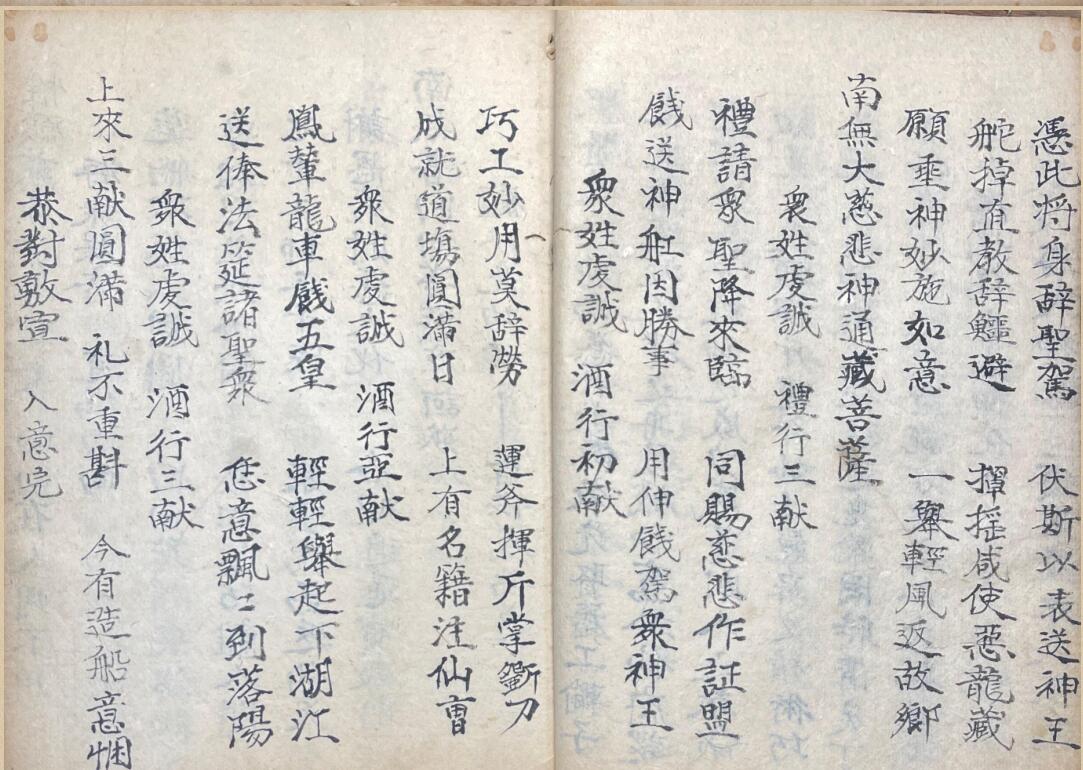 憑此将身辞聖駕　伏斯以表送神王
舵掉直教辞鱷避　揮摇咸使惡龍藏
願垂神妙施如意　一舉輕風返故鄉
南無大慈悲神通藏菩薩
衆姓虔誠　禮行三献
禮請衆聖降來臨　同賜慈悲作証盟
餞送神舡因勝事　用伸餞駕衆神王
衆姓虔誠　酒行初献
巧工妙用莫辞勞　運斧揮斤掌劉刀
成就道塲圓滿日　上有名籍注仙曹
衆姓虔誠　酒行亞献
鳳輦龍車餞五皇　輕輕舉起下湖江
送俸法筵諸聖衆　恁意飄〻到落陽
衆姓虔誠　酒行三献
上來三献圓滿　礼不重斟　今有造船意悃
恭對敷宣　入意完